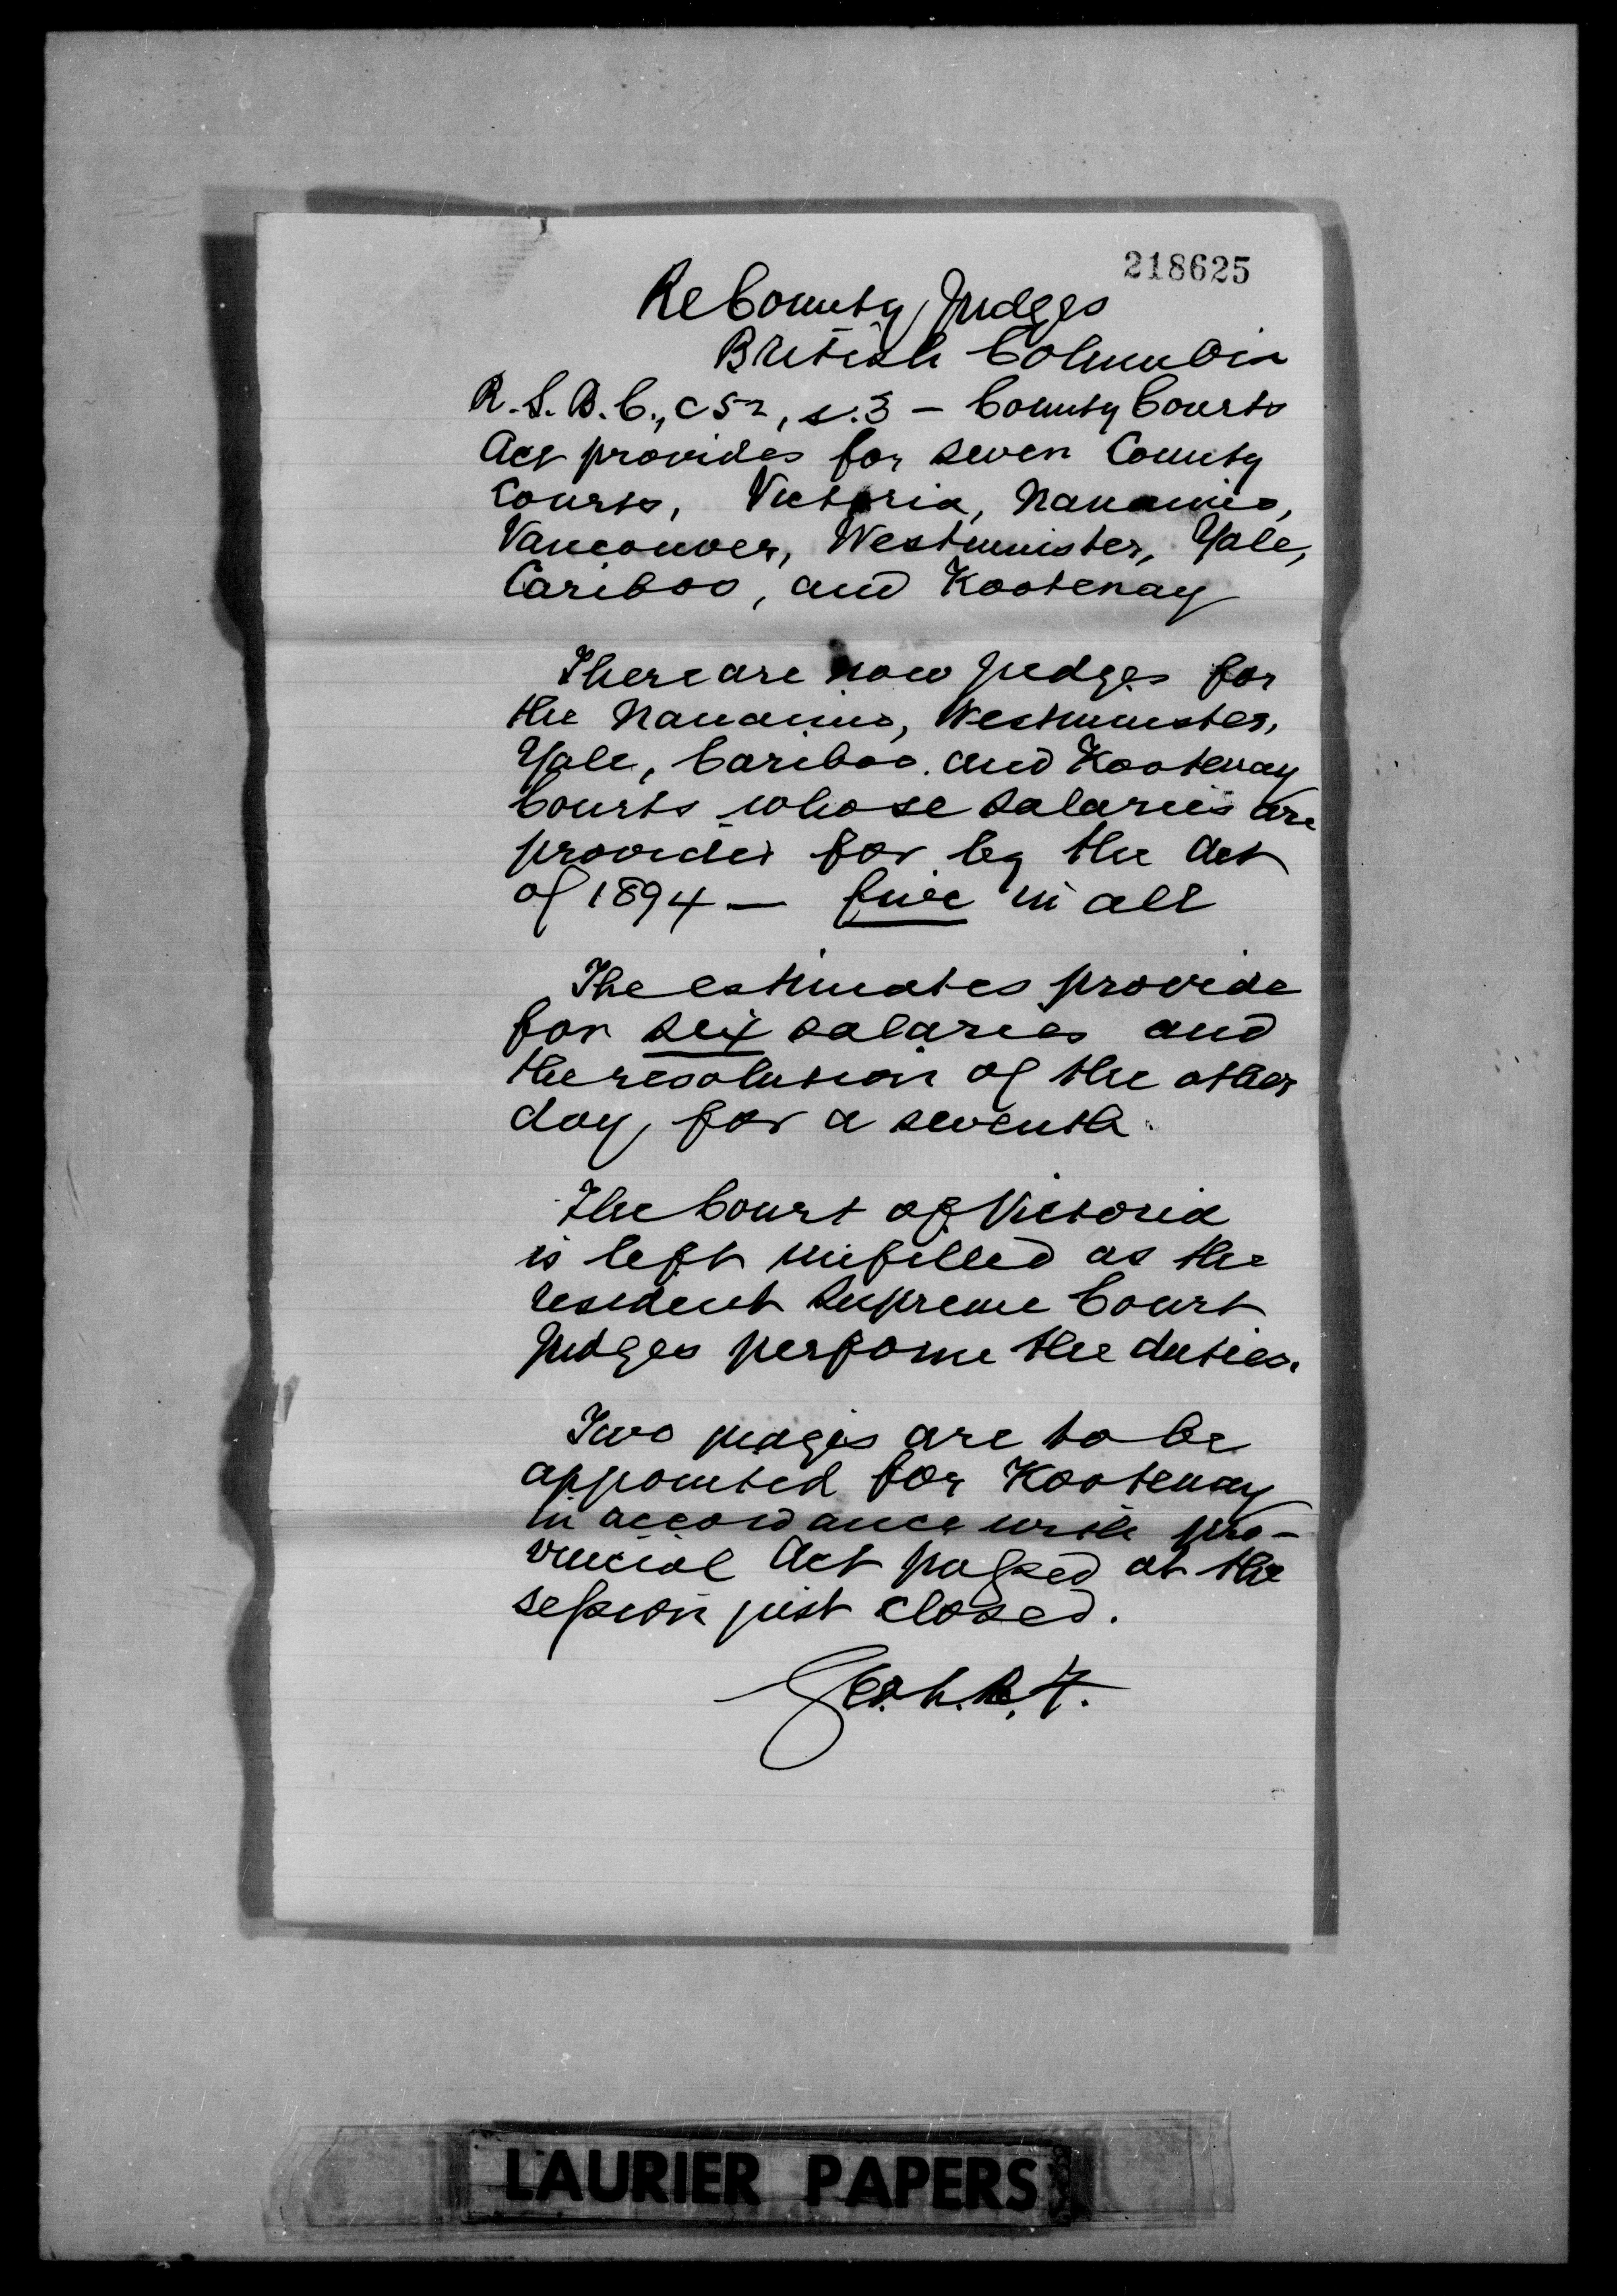 218625
Re County Judges
British Columbia
R.S.B.C., c 52, s.3 - County Courts
Act provides for seven County
Courts, Victoria, Nanaimo,
Vancouver, Westminster, Yale,
Cariboo, and Kootenay
There are now judges for
the Nanaimo, Westminster,
Yale, Cariboo and Kootenay
Courts whose salaries are
provided for by the Act
of 1894 — five in all
The estimates provide
for six salaries and
the resolution of the other
day, for a seventh.
The Court of Victoria
is left unfilled as the
resident Supreme Court
Judges performe the duties.
Two judges are to be
appointed for Kootenay
in accordance with pro-
vincial Act passed at the
session just closed.
LAURIER PAPERS